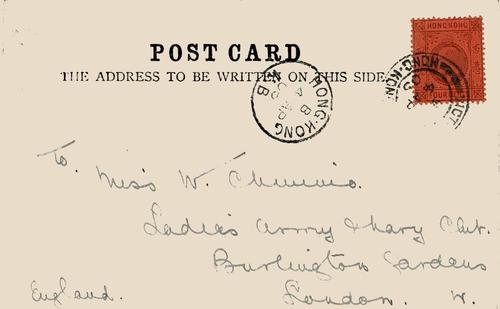 POST CARD
THE ADDRESS TO BE WRITTEN ON THIS SIDE
HONG KONG
FOUR
HONG-KONG
B
HONG-KONG
VICT
To. Miss W.
Ladies Army & Navy Club.
Burlington Gardens
England. London. W.